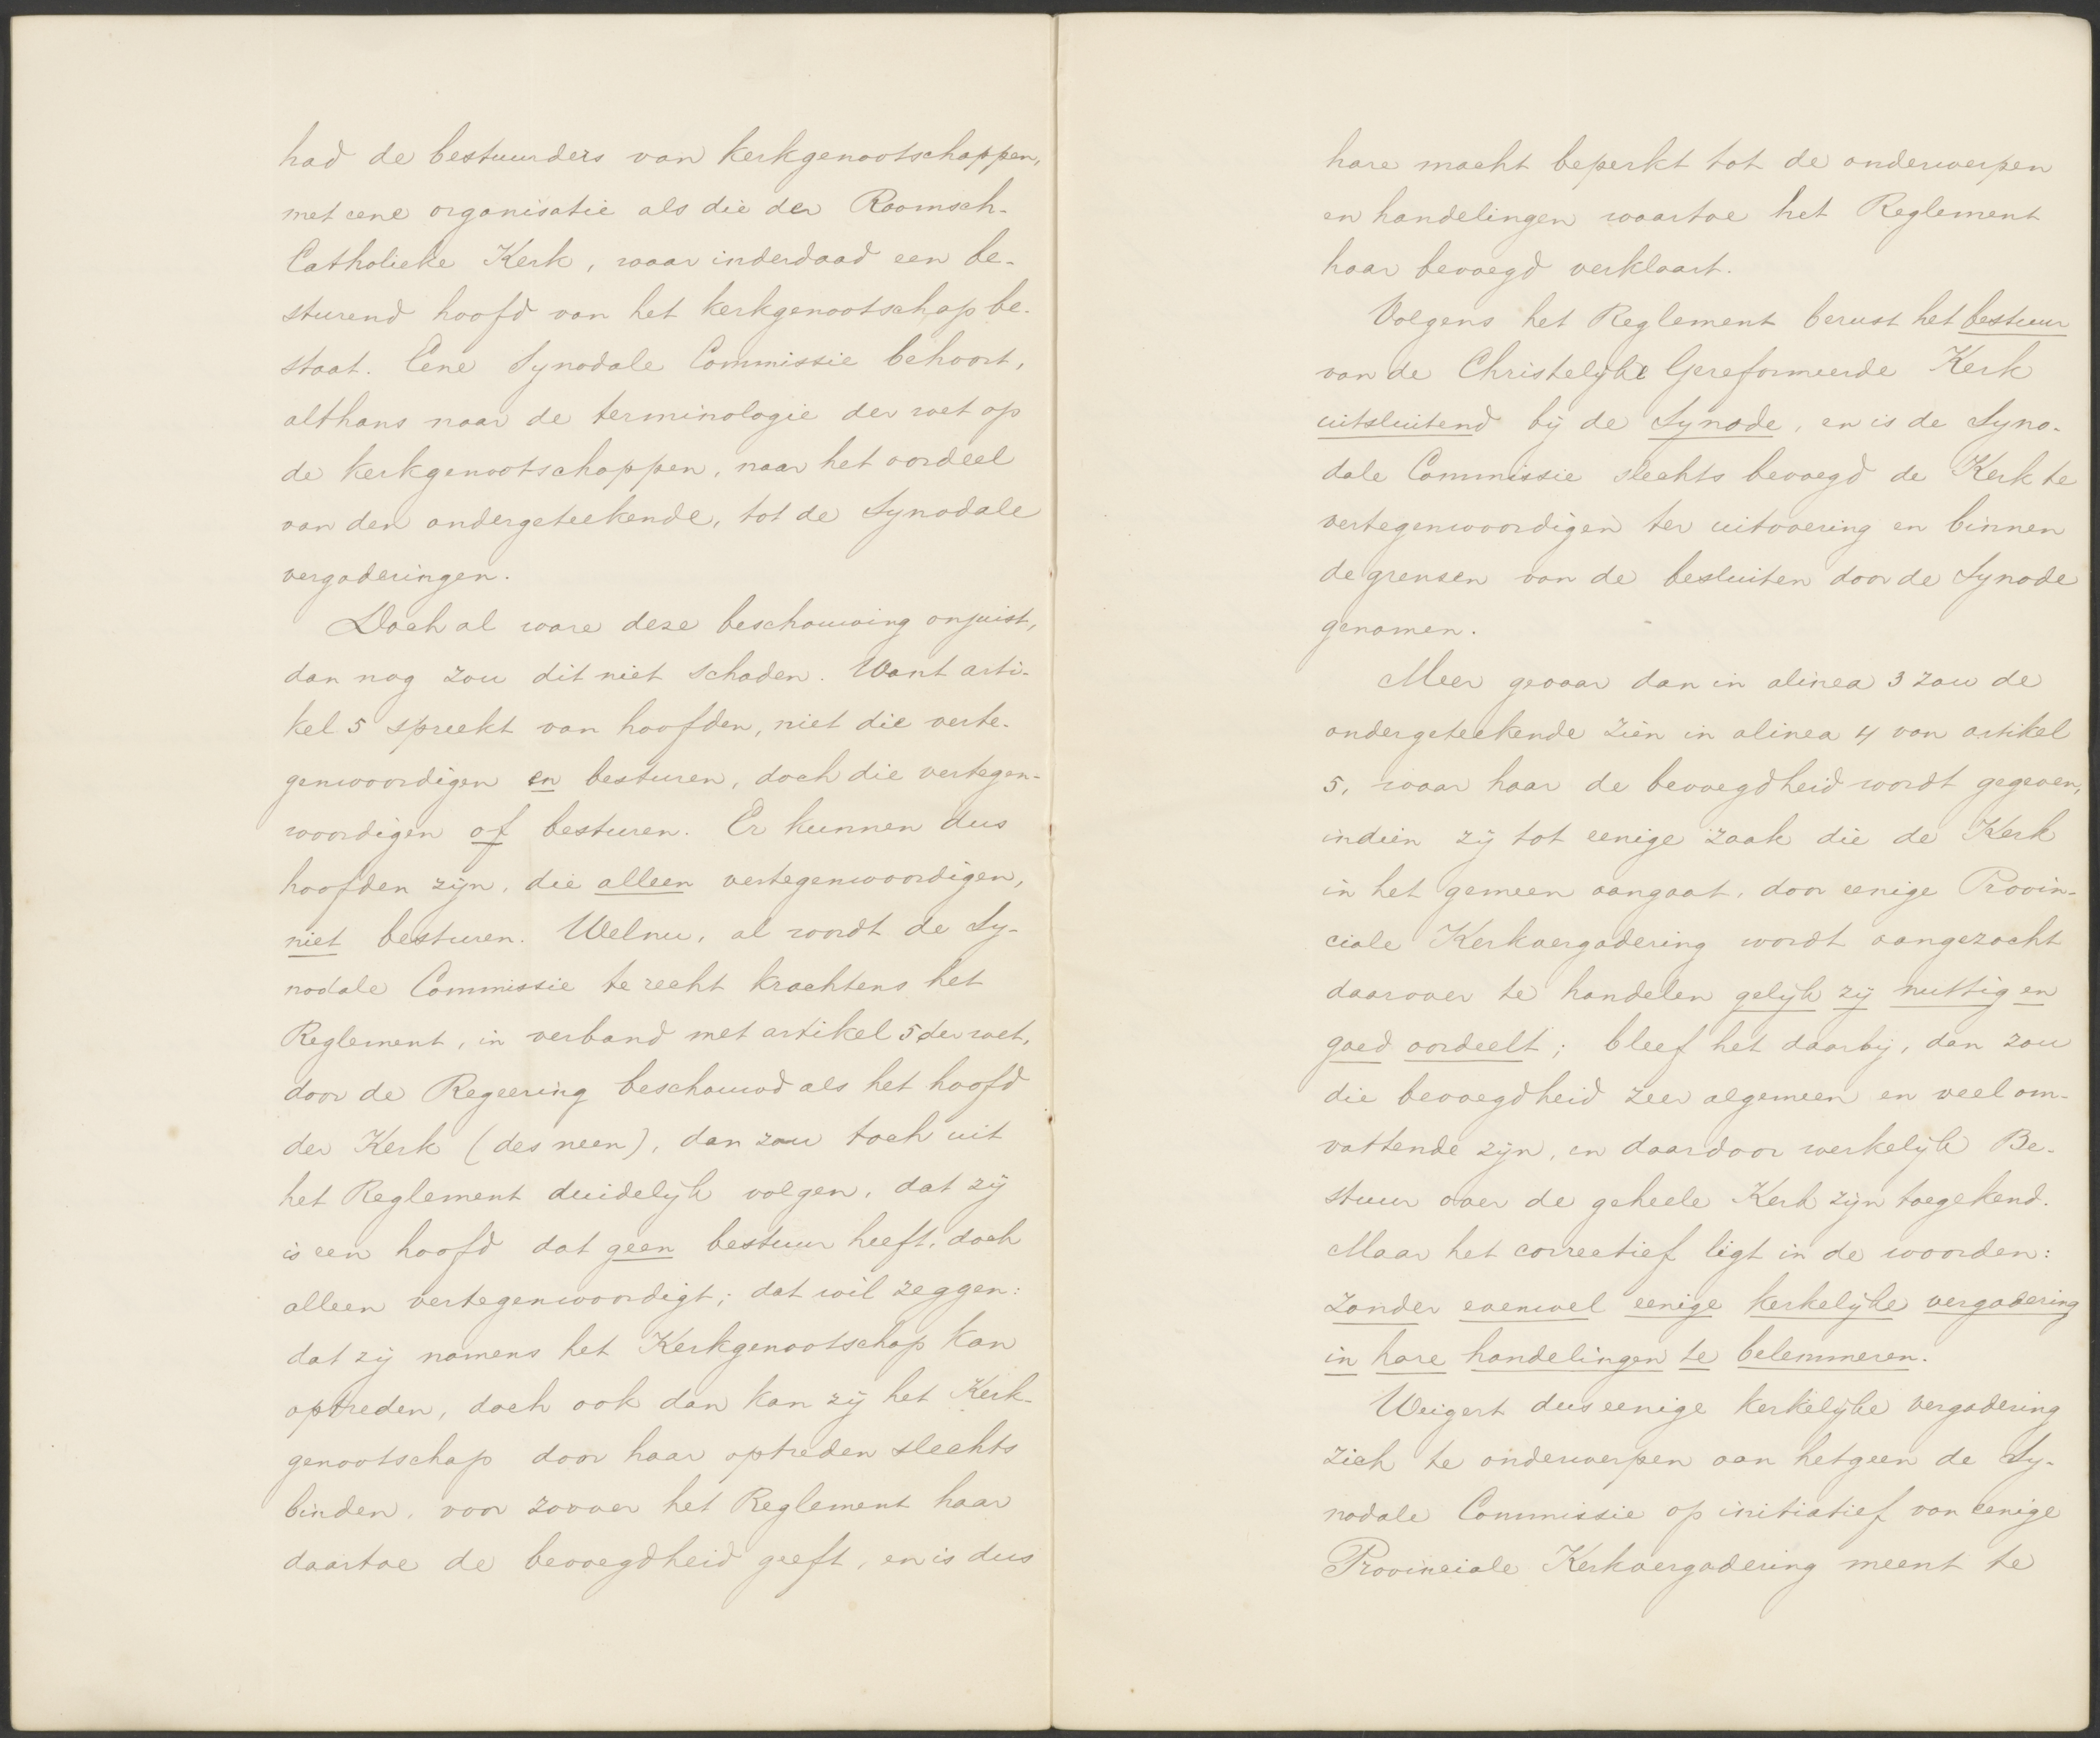 had de bestuurders van kerkgenootschappen,
met eene organisatie als die der Roomsch-
Catholieke Kerk, waar inderdaad een be-
sturend hoofd van het kerkgenootschap be-
staat. Eene Synodale Commissie behoort,
althans naar de terminologie der wet op
de kerkgenootschappen, naar het oordeel
van den ondergeteekende, tot de Synodale
vergaderingen.
Doch al ware deze beschouwing onjuist,
dan nog zou dit niet schaden. Want arti-
kel 5 spreekt van hoofden, niet die verte-
genwoordigen en besturen, doch die vertegen-
woordigen of besturen. Er kunnen dus
hoofden zijn, die alleen vertegenwoordigen,
niet besturen. Welnu, al wordt de Sy-
nodale Commissie te recht krachtens het
Reglement, in verband met artikel 5 der wet,
door de Regeering beschouwd als het hoofd
der Kerk (des neen), dan zou toch uit
het Reglement duidelijk volgen, dat zij
is een hoofd dat geen bestuur heeft, doch
alleen vertegenwoordigt; dat wil zeggen:
dat zij namens het Kerkgenootschap kan
optreden, doch ook dan kan zij het Kerk-
genootschap door haar optreden slechts
binden, voor zoover het Reglement haar
daartoe de bevoegdheid geeft, en is dus
hare macht beperkt tot de onderwerpen
en handelingen waartoe het Reglement
haar bevoegd verklaart.
Volgens het Reglement berust het bestuur
van de Christelijke Gereformeerde Kerk
uitsluitend bij de Synode, en is de Syno-
dale Commissie slechts bevoegd de Kerk te
vertegenwoordigen ter uitvoering en binnen
de grenzen van de besluiten door de Synode
genomen.
Meer gevaar dan in alinea 3 zou de
ondergeteekende zien in alinea 4 van artikel
5, waar haar de bevoegdheid wordt gegeven,
indien zij tot eenige zaak die de Kerk
in het gemeen aangaat, door eenige Provin-
ciale Kerkvergadering wordt aangezocht
daarover te handelen gelijk zij nuttig en
goed oordeelt; bleef het daarbij, dan zou
die bevoegdheid zeer algemeen en veel om-
vattende zijn, en daardoor werkelijk Be-
stuur over de geheele Kerk zijn toegekend.
Maar het correctief ligt in de woorden:
zonder evenwel eenige kerkelijke vergadering
in hare handelingen te belemmeren.
Weigert dus eenige kerkelijke vergadering
zich te onderwerpen aan hetgeen de Sy-
nodale Commissie op initiatief van eenige
Provinciale Kerkvergadering meent te